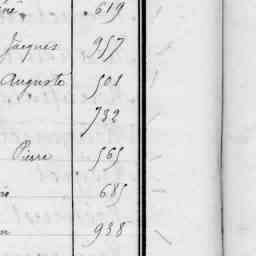 619
Jacques 957
Auguste 501
732
Pierre 565
685
938